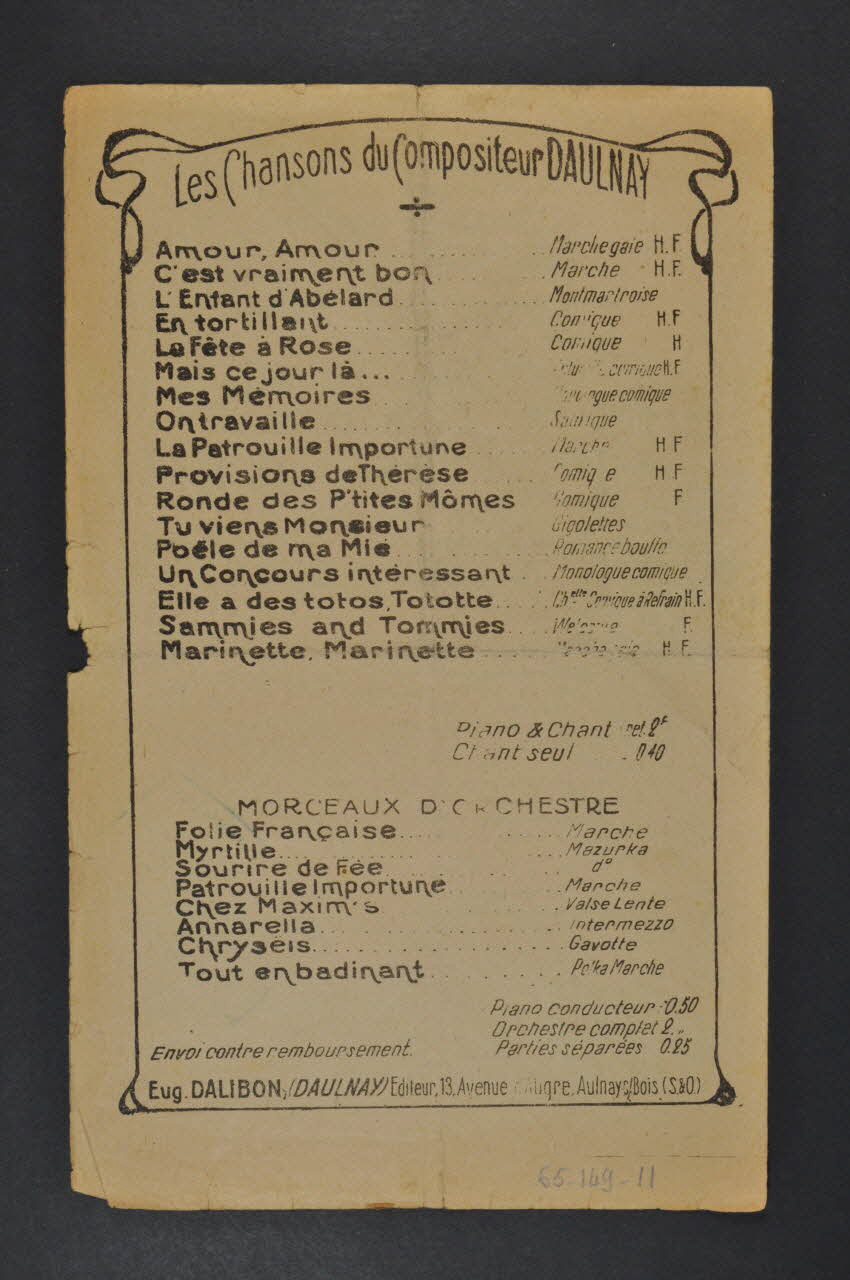 Les Chansons du Compositeur DAULNAY
÷
Amour, Amour ........ Marche gaie H.F.
C'est vraiment bon ........ Marche H.F.
L'Enfant d'Abélard ........ Montmartroise
En tortillant ........ Comique H.F
La Fête à Rose ........ Comique H
Mais ce jour là... comique H.F
Mes Mémoires ........ comique
On travaille ........
La Patrouille Importune ........ Marche H F
Provisions de Thérèse ........ Comique H F
Ronde des P'tites Mômes Comique F
Tu viens Monsieur ........ Gigolettes
Poêle de ma Mie ........ Romance bouffe
Un Concours intéressant . Monologue comique
Elle a des totos, Tototte .... Ch^ette Comique à Refrain H.F.
Sammies and Tommies .... Welcome F.
Marinette, Marinette .... H F.
Piano & Chant net. 2f
Chant seul . 0 40
MORCEAUX D'ORCHESTRE
Folie Française ........ Marche
Myrtille ........ Mazurka
Sourire de Fée ........ d°
Patrouille Importune ........ Marche
Chez Maxim's ........ Valse Lente
Annarella ........ Intermezzo
Chryséis ........ Gavotte
Tout en badinant ........ Polka Marche
Piano conducteur 0.50
Orchestre complet 2.,,
Envoi contre remboursement. Parties séparées 0.25
Eug. DALIBON, (DAULNAY) Editeur, 13, Avenue Aulnay s/Bois (S.&O.)
65-149-11